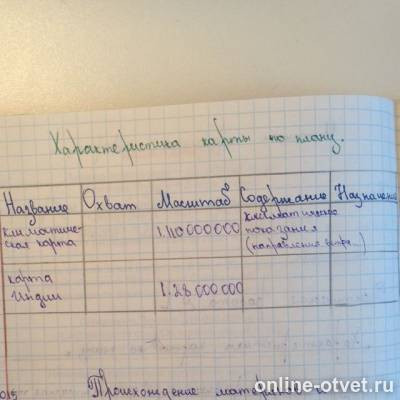 Характеристика карты по плану.
Название Охват Масштаб Содержание Назначение
климатиче- 1:110000000 климатические
ская карта показания
(направления ветра...)
карта
Индии 1:28 000 000
Происхождение материков и
online-otvet.ru